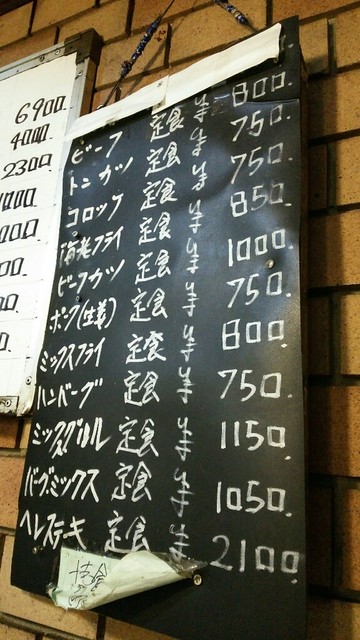 6900.
4000.
2300.
ビーフ 定食 ¥ 800.
トンカツ 定食 ¥ 750.
コロッケ 定食 ¥ 750.
海老フライ 定食 ¥ 850.
ビーフカツ 定食 ¥ 1000.
ポーク(生姜) 定食 ¥ 750.
ミックスフライ 定食 ¥ 800.
ハンバーグ 定食 ¥ 750.
ミックスグリル 定食 ¥ 1150.
バーグミックス 定食 ¥ 1050.
ヘレステーキ 定食 ¥ 2100.